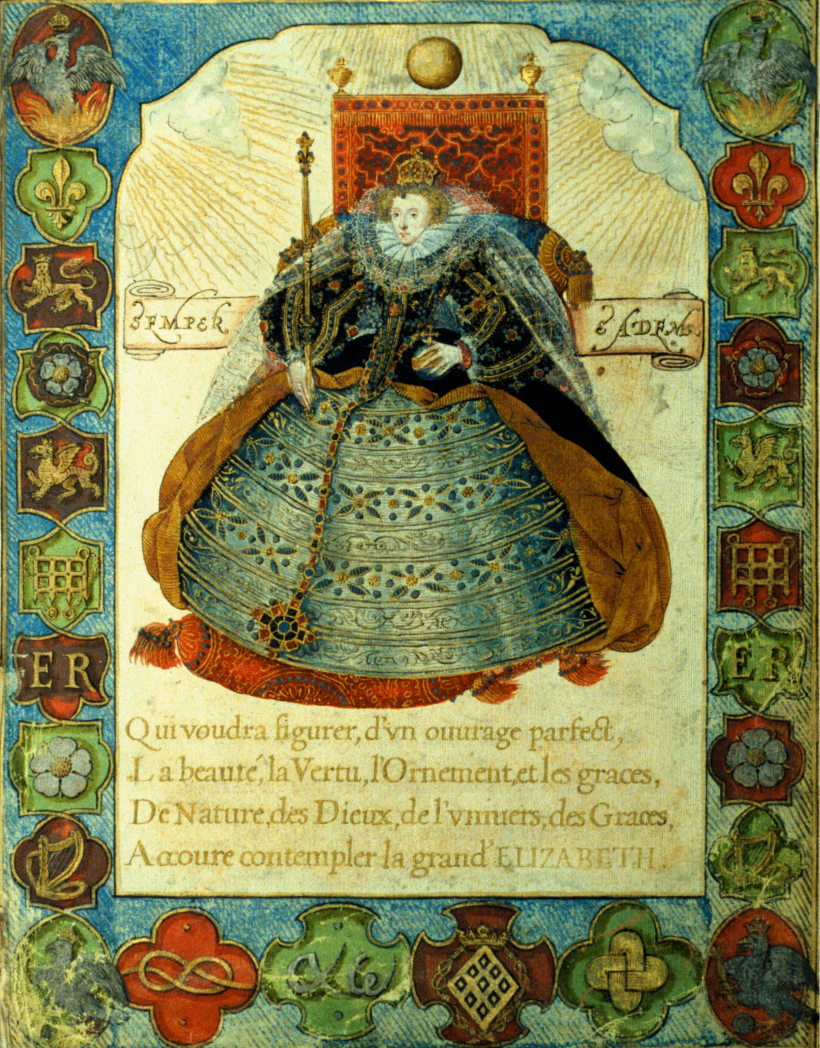 SEMPER EADEM.
ER ER
Qui voudra figurer, d'vn ouurage parfect,
La beauté, la Vertu, l'Ornement, et les graces,
De Nature, des Dieux, de l'vniuers, des Graces,
Accoure contempler la grand' ELIZABETH.